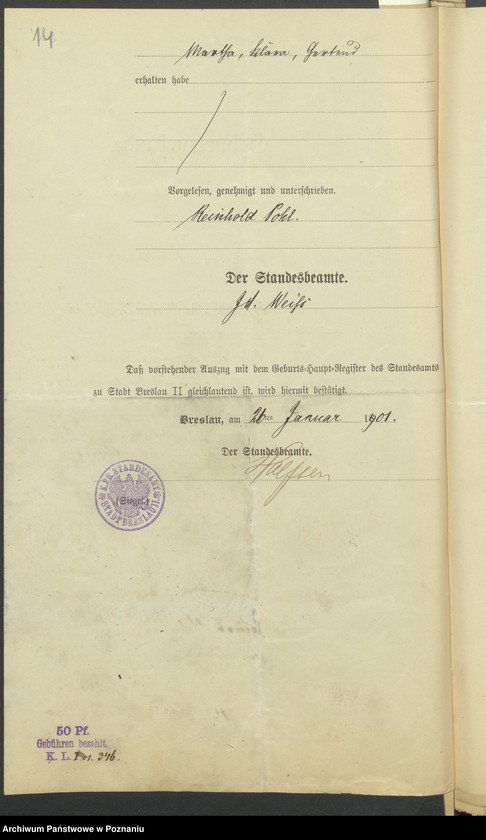 14
Martha, Klara, Gertrud
erhalten habe
Vorgelesen, genehmigt und unterschrieben.
Reinhold Pohl.
Der Standesbeamte.
Weiß
Daß vorstehender Auszug mit dem Geburts-Haupt-Register des Standesamts
zu Stadt Breslau II gleichlautend ist, wird hiermit bestätigt.
Breslau, am 26ten Januar 1901.
Der Standesbeamte.
K. PR. STANDESAMT
(Siegel.)
STADT BRESLAU II.
50 Pf.
Gebühren bezahlt.
K. L. 346.
Archiwum Państwowe w Poznaniu
Archiwum Państwowe w Poznaniu